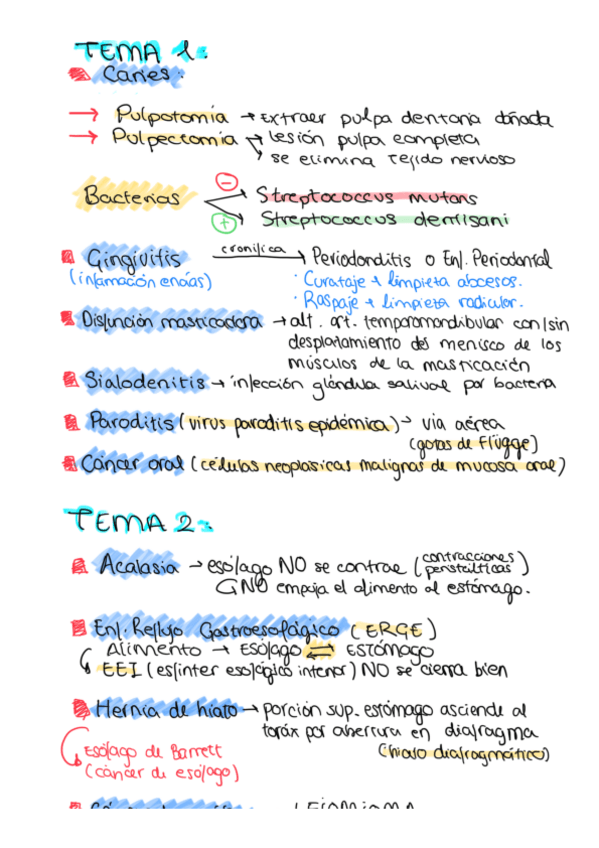 TEMA 1:
Caries:
→ Pulpotomía → Extraer pulpa dentaria dañada
→ Pulpectomía → Lesión pulpa completa
↘ se elimina tejido nervioso
Bacterias
⊖ Streptococcus mutans
⊕ Streptococcus dentisani
Gingivitis cronifica → Periodonditis o Enf. Periodontal
(inflamación encías) · Curataje → limpieza abcesos.
· Raspaje → limpieza radicular.
Disfunción masticadora → alt. art. temporomandibular con/sin
desplazamiento del menisco de los
músculos de la masticación
Sialodenitis → infección glándula salival por bacteria
Paroditis (virus paroditis epidémica) → vía aérea
(gotas de Flügge)
Cáncer oral (células neoplásicas malignas de mucosa oral)
TEMA 2:
Acalasia → esófago NO se contrae (contracciones peristálticas)
↳ NO empuja el alimento al estómago.
Enf. Reflujo Gastroesofágico (ERGE)
Alimento → Esófago ⇌ Estómago
EEI (esfínter esofágico inferior) NO se cierra bien
Hernia de hiato → porción sup. estómago asciende al
toráx por abertura en diafragma
(hiato diafragmático)
Esófago de Barrett
(cáncer de esófago)